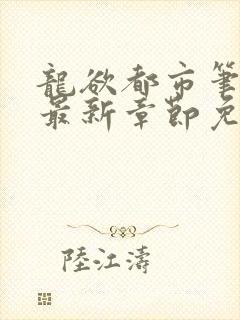 龍欲都市筆
最新章節免
陸江濤